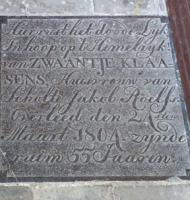 Hier rust het doode Lyk
In hoop op t Hemelryk
van ZWAANTJE KLAA
SENS Huisvrouw van
Scholte Jakob Roelfs
Overleed den 24sten
Maart 1804 zynde
ruim 55 Jaaren